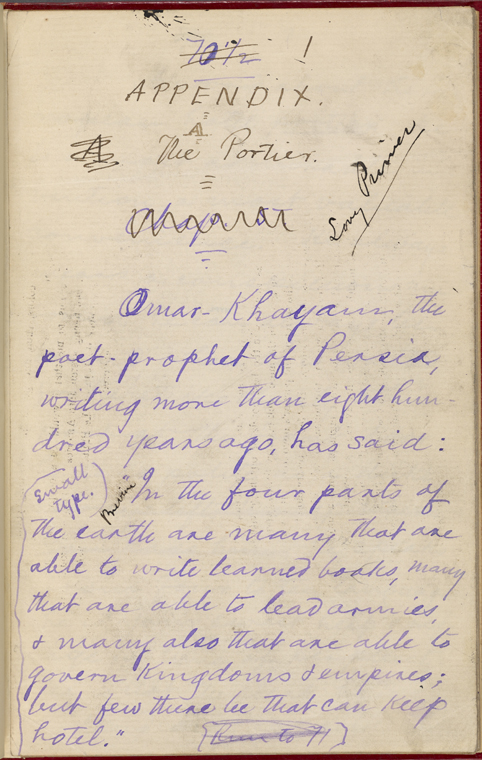 70 1/2 !
APPENDIX.
A
The Portier.
Long Primer
Omar-Khayam, the
poet-prophet of Persia,
writing more than eight hun-
dred years ago, has said:
(Small
type.)
"In the four parts of
the earth are many that are
able to write learned books, many
that are able to lead armies,
& many also that are able to
govern kingdoms & empires;
but few there be that can keep
hotel."